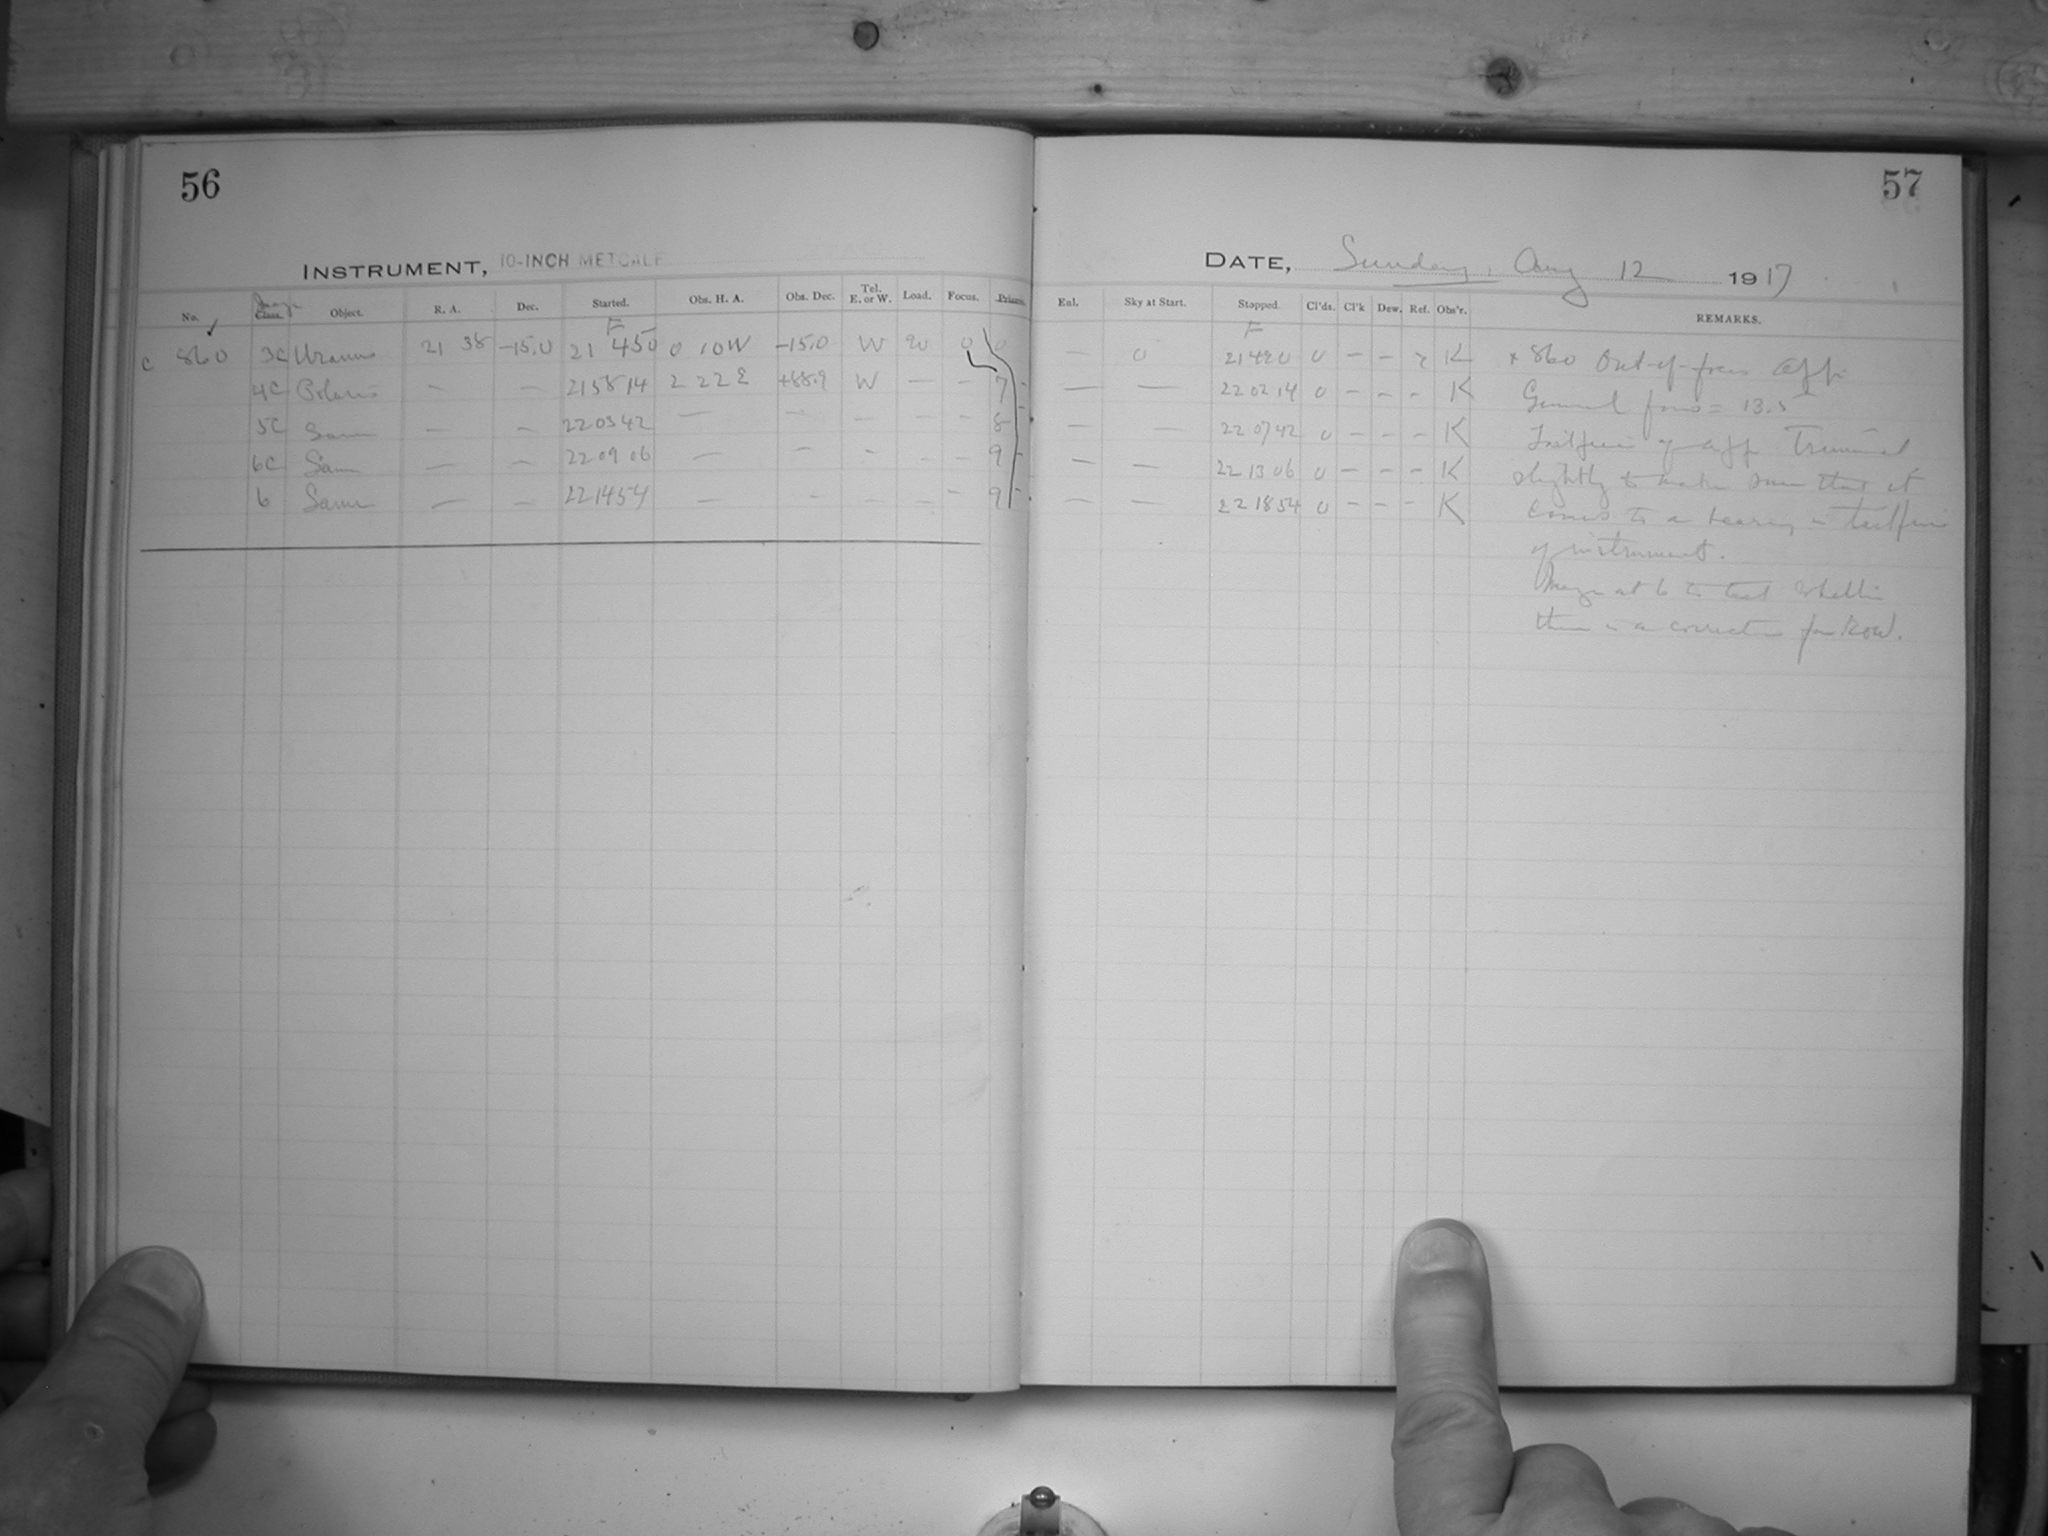 56
INSTRUMENT, 10-INCH METCALF
No. Image Class. Object. R. A. Dec. Started. Obs. H. A. Obs. Dec. Tel. E. or W. Load. Focus. Prisms.
C 860 3C Uranus 21 38 -15.0 21 45 0 0 10W -15.0 W 20 0 0
4C Polaris — — 21 58 14 2 22 E +88.9 W — – 7 –
5C Same — — 22 03 42 — – – – – 8
6C Same — — 22 09 06 — – – – – 9 –
6 Same — – 22 14 54 — – – – – 9 –
57
DATE, Sunday, Aug 12 1917
Enl. Sky at Start. Stopped. Cl'ds. Cl'k Dew. Ref. Obs'r. REMARKS.
— 0 0 – – K 860 Out-of-focus
— — 22 02 14 0 – – – K General focus = 13.5
— — 22 07 42 0 – – – K of trimmed
— — 22 13 06 0 – – – K slightly to make sure that it
— — 22 18 54 0 – – – K comes to a bearing in
of instrument.
Image at 6 to test whether
there is a correction for